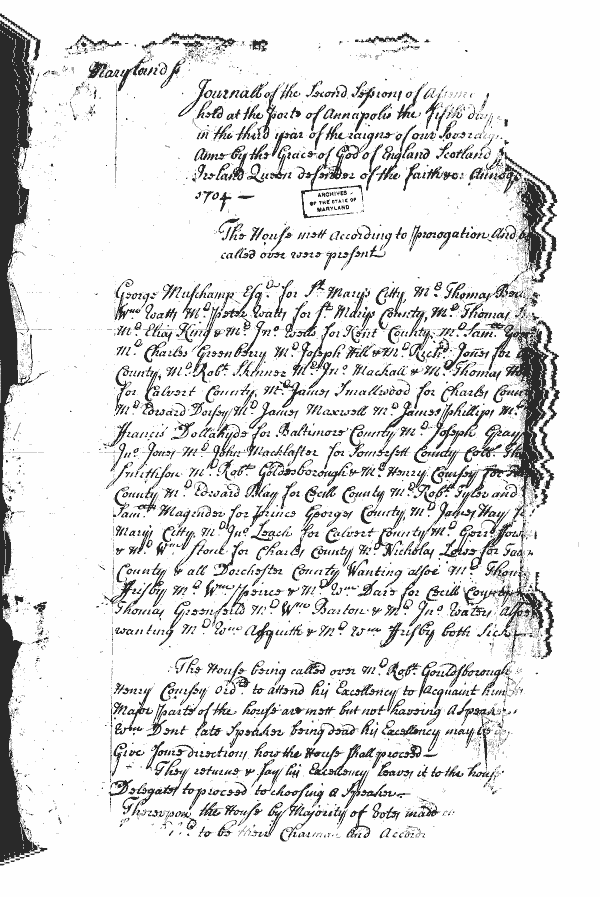 Maryland ss
Journall of the Second Sessions of Assem
held at the Porte of Annapolis the fifth day
in the third year of the raigne of our Soveraig
Anne by the Grace of God of England Scotland
Ireland Queen defender of the faith &c Annoq
1704 —
ARCHIVES
OF THE STATE OF
MARYLAND
The House mett According to Prorogation And b
called over were present
George Muschamp Esqr for St Marys Citty, Mr Thomas Bea
Wm Watts Mr Peter Watts for St Marys County, Mr Thomas
Mr Elias King & Mr Jno Wells for Kent County, Mr Sam
Mr Charles Greenberry Mr Joseph Hill & Mr Richd Jones for
County, Mr Robt Skinner Mr Jno Mackall & Mr Thomas H
for Calvert County, Mr James Smallwood for Charles Coun
Mr Edward Dorsey Mr James Maxwell Mr James Phillips Mr
Francis Dollahyde for Baltimore County Mr Joseph Gray
Jno Jones Mr John Macklaster for Somersett County Coll Th
Smithson Mr Robt Goldesborough & Mr Henry Coursey for
County Mr Edward Blay for Cecill County Mr Robt Tyler and
Saml Magruder for Prince Georges County Mr James Hay
Marys Citty Mr Jno Leach for Calvert County Mr Gerrd Fow
& Mr Wm Stone for Charles County Mr Nicholas Lowe for
County & all Dorchester County Wanting alsoe Mr Thom
Frisby Mr Wm Pearce & Mr Wm Dare for Cecill County
Thomas Greenfield Mr Wm Barton & Mr Jno Waters Alsoe
wanting Mr Wm Asquith & Mr Wm Frisby both Sick
The House being called over Mr Robt Gouldsborough
Henry Coursey Ordrd to attend his Excellency to Acquaint him
Major Parte of the house are mett but not haveing A Speak
Wm Dent late Speaker being dead his Excellency may be
Give Some directions how the House Shall proceed —
They returne & Say his Excellency leaves it to the hous
Delegates to proceed to choosing A Speaker
Thereupon the House by Majority of Votes made
to be their Chairman And Accordi